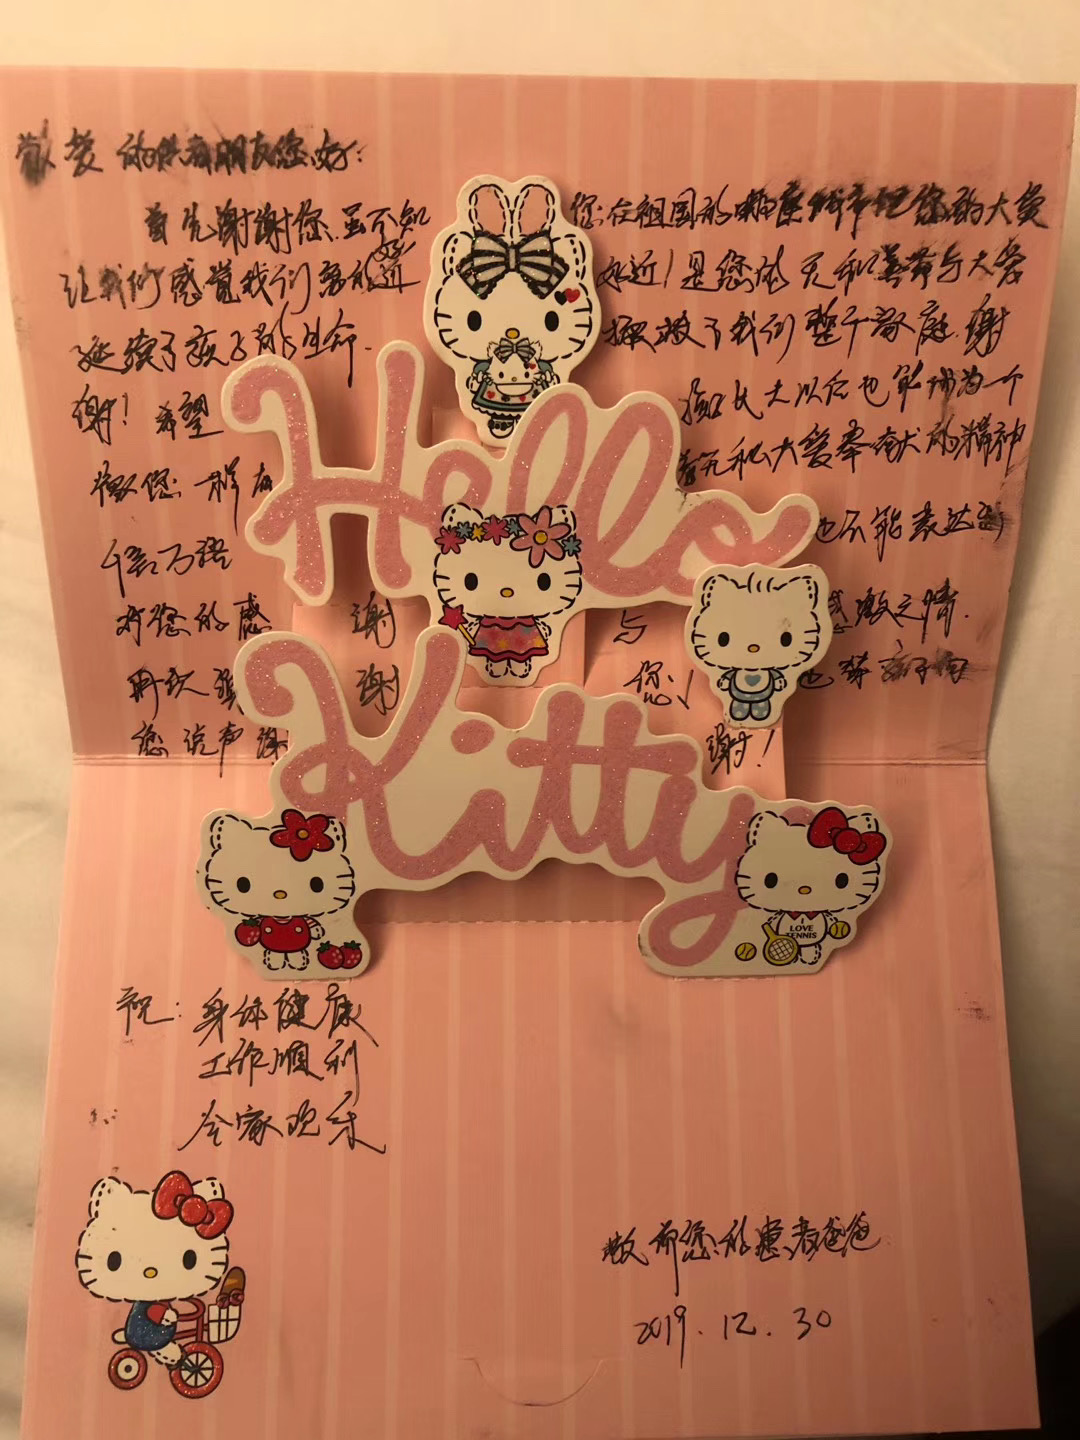 敬爱的供者朋友您好：
首先谢谢您，虽不知您在祖国的哪座城市但您的大爱
让我们感觉我们离的好近好近！是您的无私善举与大爱
延续了孩子的生命. 拯救了我们整个家庭.谢
谢！希望 孩子长大以后也能成为一个
像您一样有 无私大爱奉献的精神
千言万语 也不能表达
对您的感谢与 感激之情.
再次 谢谢您！也替孩子向
您说声谢谢！
Hello
Kitty
I LOVE TENNIS
祝：身体健康
工作顺利
全家欢乐
敬仰您的患者爸爸
2019.12.30